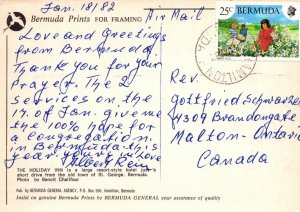 Bermuda Prints FOR FRAMING
Jan. 18/82
Air Mail
Love and Greetings
from Bermuda.
Thank you for your
Prayer. The 2
services on the
17. of Jan. give me
the 100% hope for
a Congregation
in Bermuda this
year. yours in Love
Albert
THE HOLIDAY INN is a large resort-style hotel just a
short drive from the old town of St. George, Bermuda.
Photo by Benoit Chalifour
Pub. by BERMUDA GENERAL AGENCY, P.O. Box 500, Hamilton, Bermuda
Insist on genuine Bermuda Prints by BERMUDA GENERAL your assurance of quality
25c BERMUDA
HAMILTON
Rev.
Gottfried
4309 Brandongate
Malton-Ontario
Canada